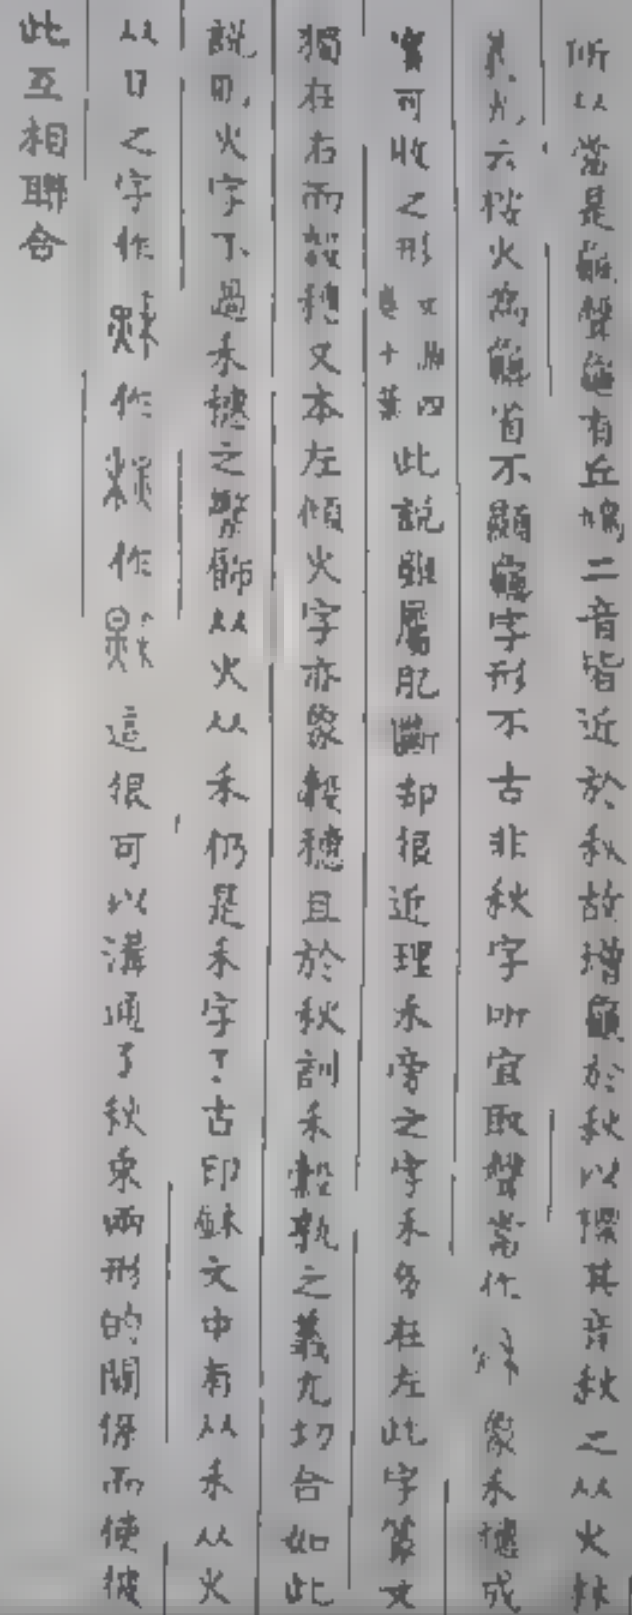 所以當是龜聲龜有丘鳩二音皆近於秋故增龜於秋以擇其音秋之从火林
義光云按火為龝省不顯龜字形不古非秋字所宜取聲當作 象禾穗成
實可收之形文源四卷十葉此說雖屬肊斷却很近理禾旁之字禾多在左此字篆文
獨在右而穀穗又本左傾火字亦象穀穗且於秋訓禾穀孰之義尤切合如此
說則火字不過禾穗之繁飾从火从禾仍是禾字了古印龢文中有从禾从火
从日之字作 作 作 這很可以溝通了秋東兩形的關係而使彼
此互相聯合